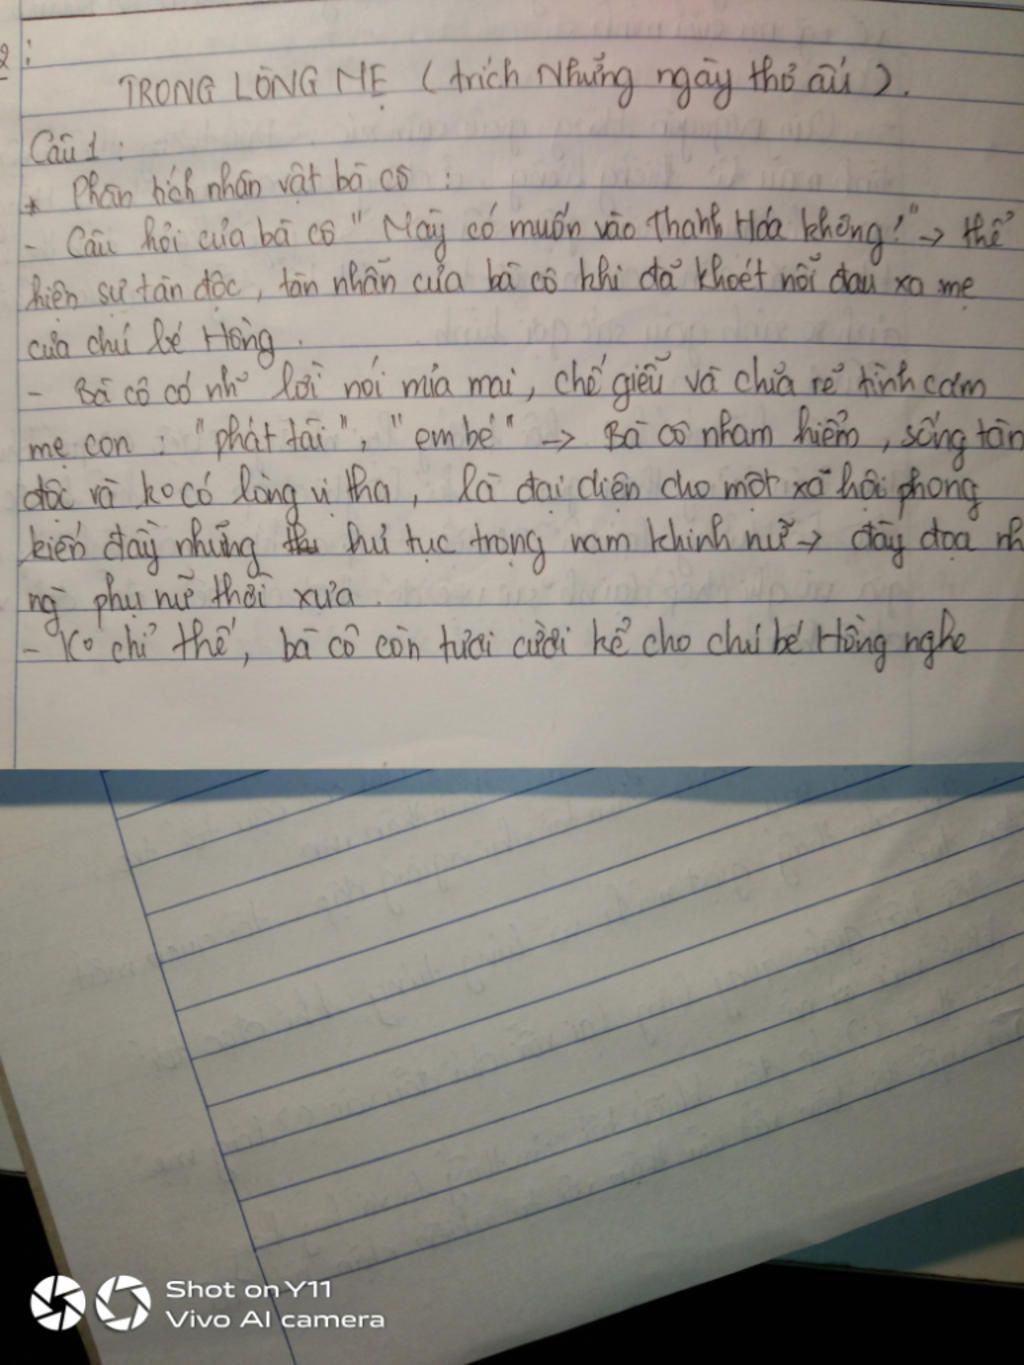 2:
TRONG LÒNG MẸ ( trích Những ngày thơ ấu ).
Câu 1 :
* Phân tích nhân vật bà cô :
- Câu hỏi của bà cô " Mày có muốn vào Thanh Hóa không! " → thể
hiện sự tàn độc, tàn nhẫn của bà cô khi đã khoét nỗi đau xa mẹ
của chú bé Hồng.
- Bà cô có nh~ lời nói mỉa mai, chế giễu và chia rẽ tình cảm
mẹ con : "phát tài", "em bé" → Bà cô nham hiểm, sống tàn
độc và ko có lòng vị tha, là đại diện cho một xã hội phong
kiến đầy những hủ tục trọng nam khinh nữ → đày đọa nh
ng~ phụ nữ thời xưa.
- Ko chỉ thế, bà cô còn tươi cười kể cho chú bé Hồng nghe
Shot on Y11
Vivo AI camera